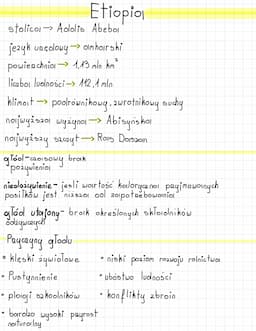 Etiopia
stolica → Addis Abeba
język urzędowy → amharski
powierzchnia → 1,13 mln km²
liczba ludności → 112,1 mln
klimat → podrównikowy, zwrotnikowy suchy
najwyższa wyżyna → Abisyńska
najwyższy szczyt → Ras Daszan
głód - czasowy brak
pożywienia
niedożywienie - jeśli wartość kaloryczna przyjmowanych
posiłków jest niższa od zapotrzebowania
głód utajony - brak określonych składników
odżywczych
Przyczyny głodu
• klęski żywiołowe • niski poziom rozwoju rolnictwa
• Pustynnienie • ubóstwo ludności
• plagi szkodników • konflikty zbrojn
• bardzo wysoki przyrost
naturalny